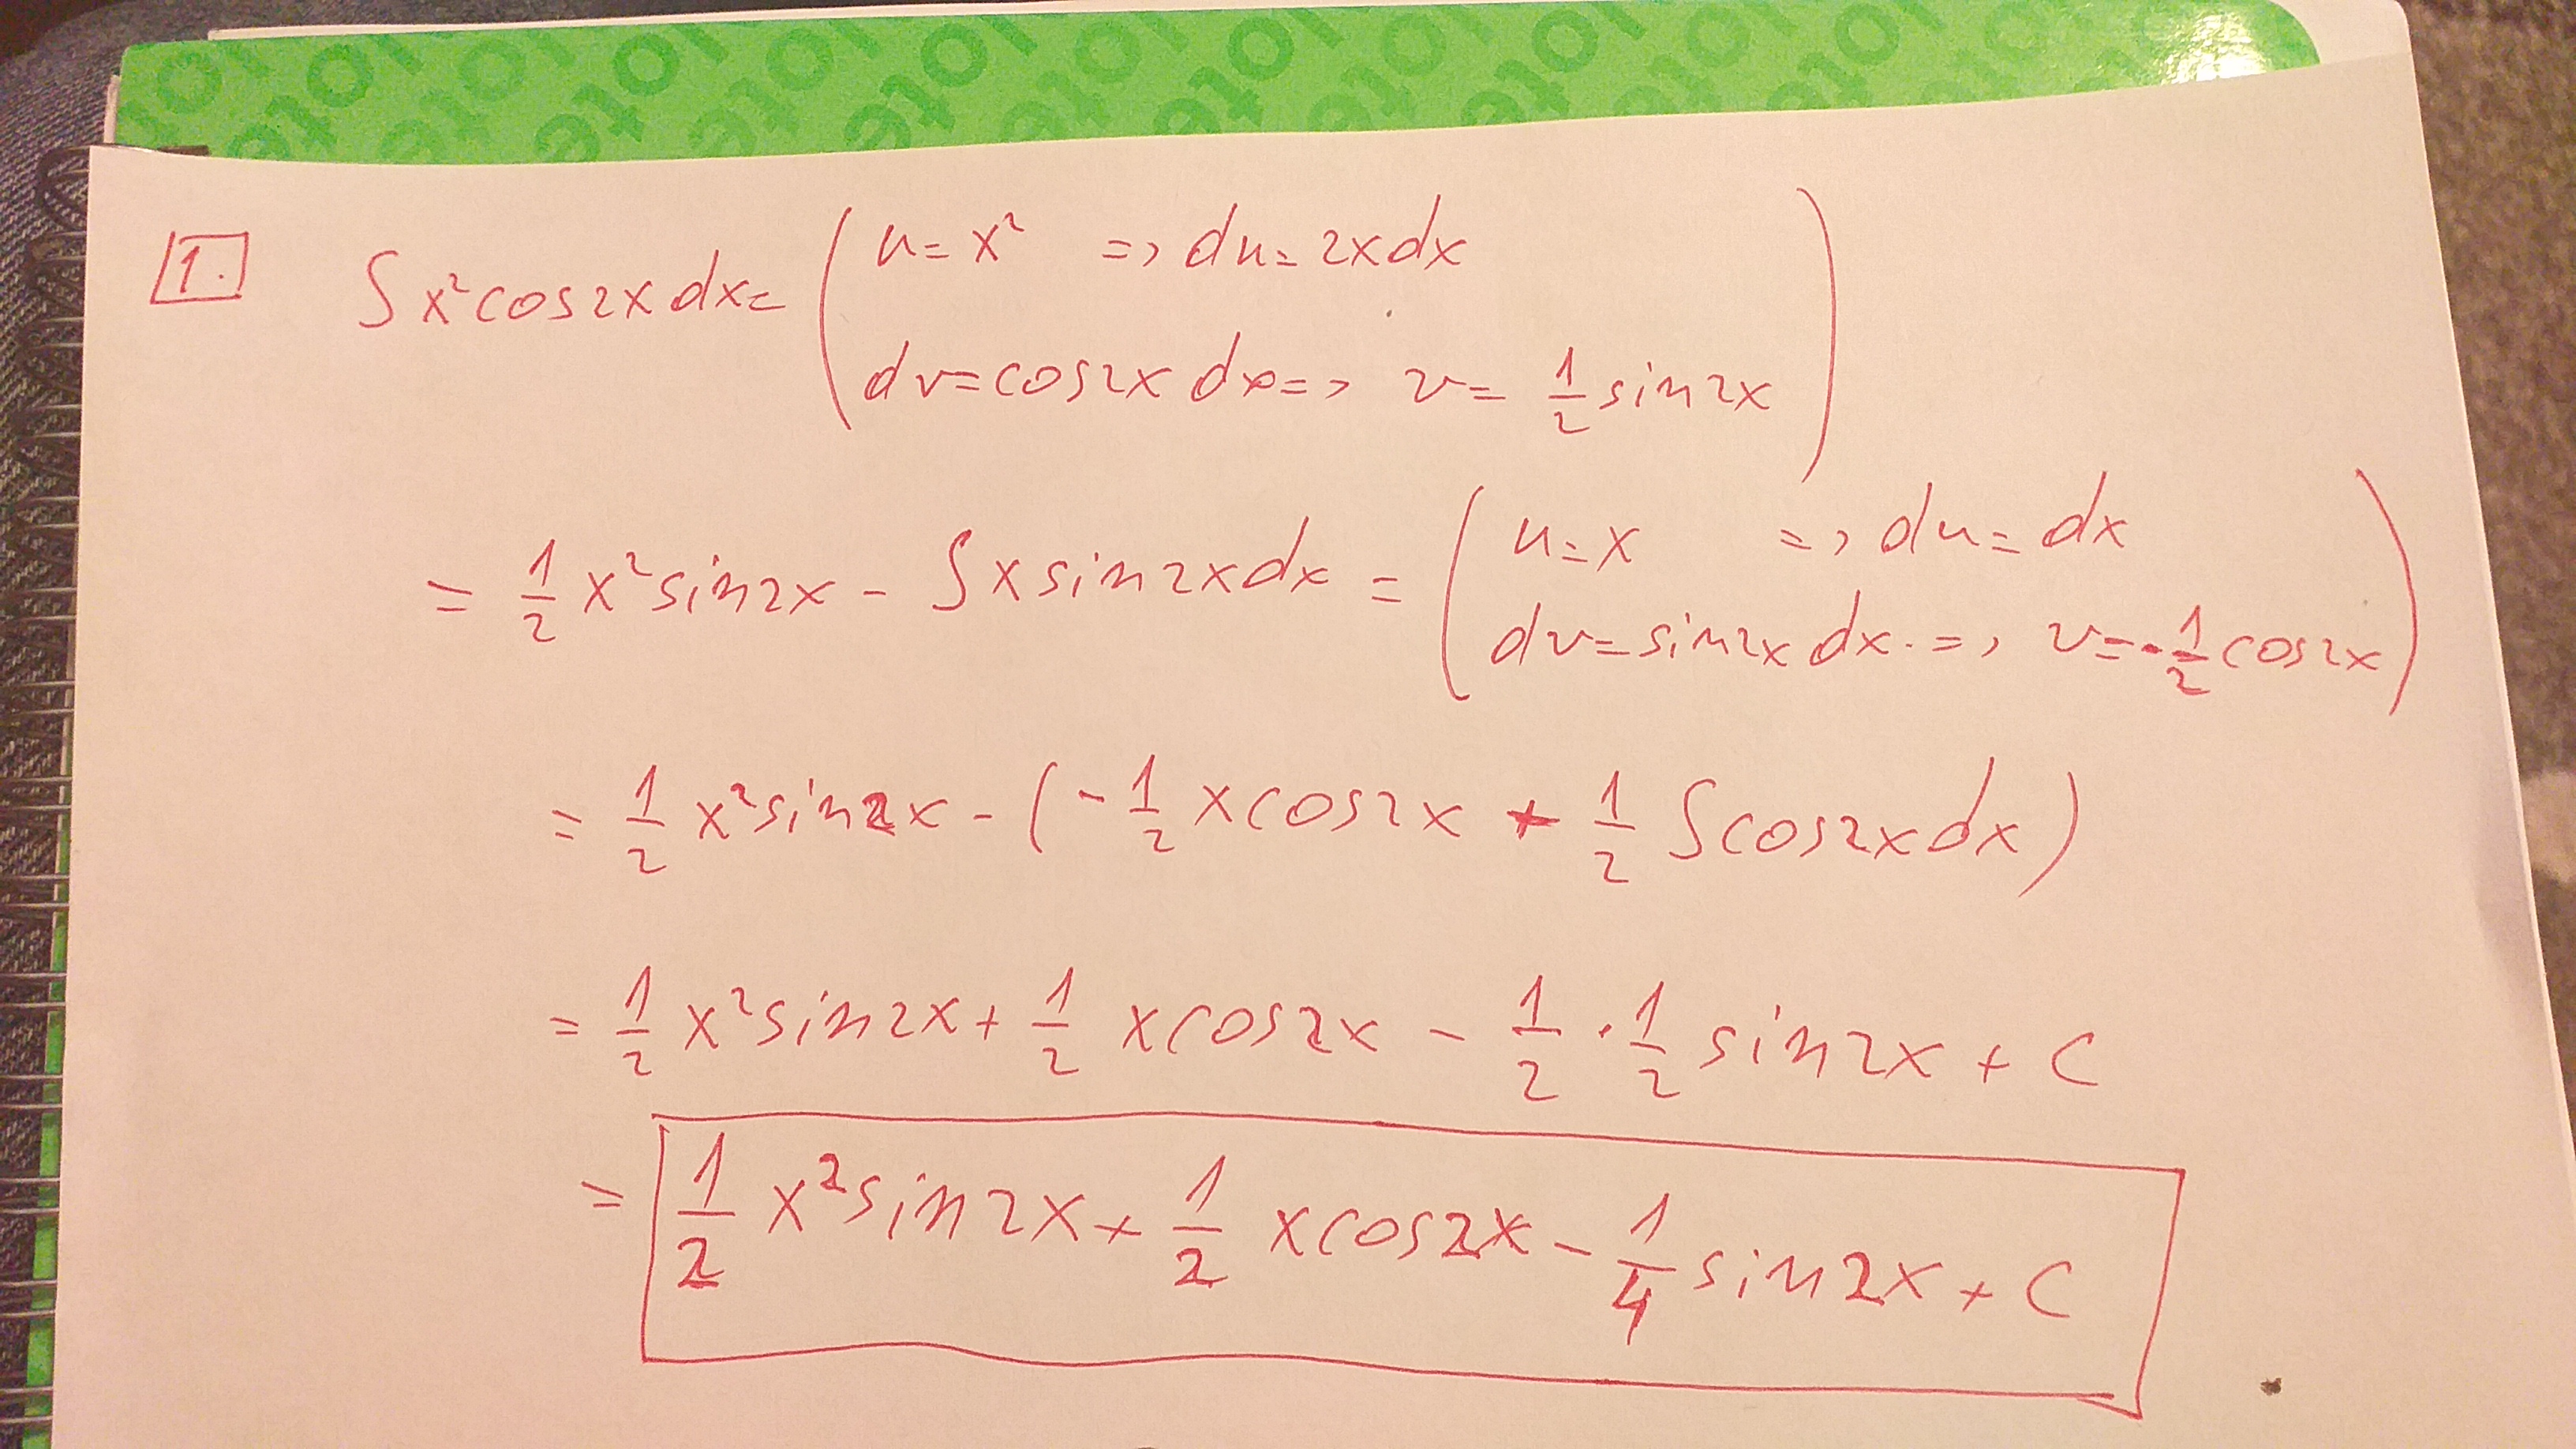 ote ote ote ote ote ote ote ote
1. ∫x²cos2xdx= ( u=x² => du=2xdx
dv=cos2xdx=> v= 1/2 sin2x )
= 1/2 x²sin2x - ∫xsin2xdx = ( u=x => du=dx
dv=sin2xdx. => v=-1/2 cos2x )
= 1/2 x²sin2x - (-1/2 xcos2x + 1/2 ∫cos2xdx)
= 1/2 x²sin2x + 1/2 xcos2x - 1/2 · 1/2 sin2x + C
= 1/2 x²sin2x + 1/2 xcos2x - 1/4 sin2x + C